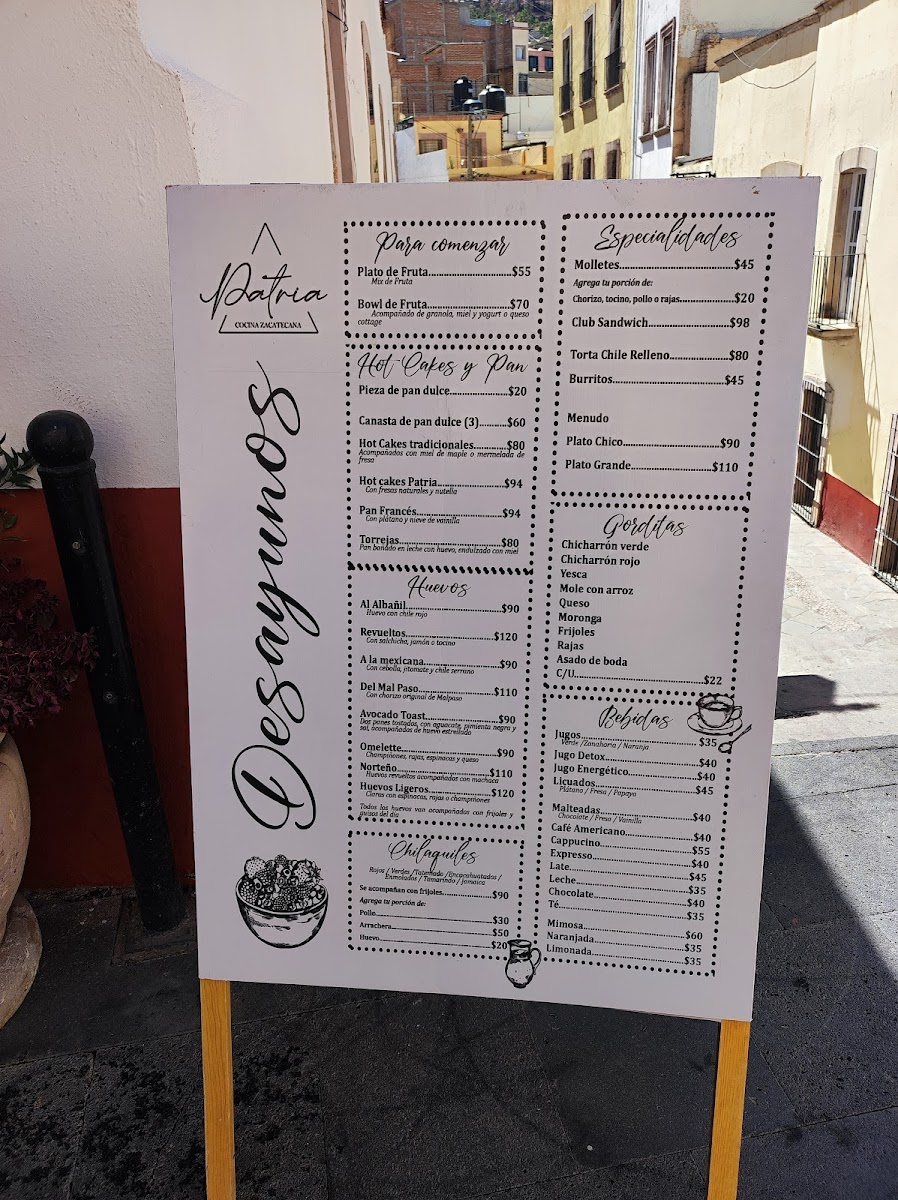 Patria
COCINA ZACATECANA
Desayunos
Para comenzar
Plato de Fruta....................$55
Mix de Fruta
Bowl de Fruta....................$70
Acompañado de granola, miel y yogurt o queso
cottage
Hot Cakes y Pan
Pieza de pan dulce....................$20
Canasta de pan dulce (3)..........$60
Hot Cakes tradicionales..........$80
Acompañados con miel de maple o mermelada de
fresa
Hot cakes Patria....................$94
Con fresas naturales y nutella
Pan Francés....................$94
Con plátano y nieve de vainilla
Torrejas....................$80
Pan bañado en leche con huevo, endulzado con miel
Huevos
Al Albañil....................$90
Huevo con chile rojo
Revueltos....................$120
Con salchicha, jamón o tocino
A la mexicana....................$90
Con cebolla, jitomate y chile serrano
Del Mal Paso....................$110
Con chorizo original de Malpaso
Avocado Toast....................$90
Dos panes tostados, con aguacate, pimienta negra y
sal, acompañados de huevo estrellado
Omelette....................$90
Champiñones, rajas, espinacas y queso
Norteño....................$110
Huevos revueltos acompañados con machaca
Huevos Ligeros....................$120
Claras con espinacas, rajas o champiñones
Todos los huevos van acompañados con frijoles y
guisos del día
Chilaquiles
Rojos / Verdes /Tatemado /Encacahuatados /
Enmolados / Tamarindo / Jamaica
Se acompañan con frijoles....................$90
Agrega tu porción de:
Pollo....................$30
Arrachera....................$50
Huevo....................$20
Especialidades
Molletes....................$45
Agrega tu porción de:
Chorizo, tocino, pollo o rajas....................$20
Club Sandwich....................$98
Torta Chile Relleno....................$80
Burritos....................$45
Menudo
Plato Chico....................$90
Plato Grande....................$110
Gorditas
Chicharrón verde
Chicharrón rojo
Yesca
Mole con arroz
Queso
Moronga
Frijoles
Rajas
Asado de boda
C/U....................$22
Bebidas
Jugos....................$35
Verde /Zanahoria / Naranja
Jugo Detox....................$40
Jugo Energético....................$40
Licuados....................$45
Plátano / Fresa / Papaya
Malteadas....................$40
Chocolate / Fresa / Vainilla
Café Americano....................$40
Cappucino....................$55
Expresso....................$40
Late....................$45
Leche....................$35
Chocolate....................$40
Té....................$35
Mimosa....................$60
Naranjada....................$35
Limonada....................$35